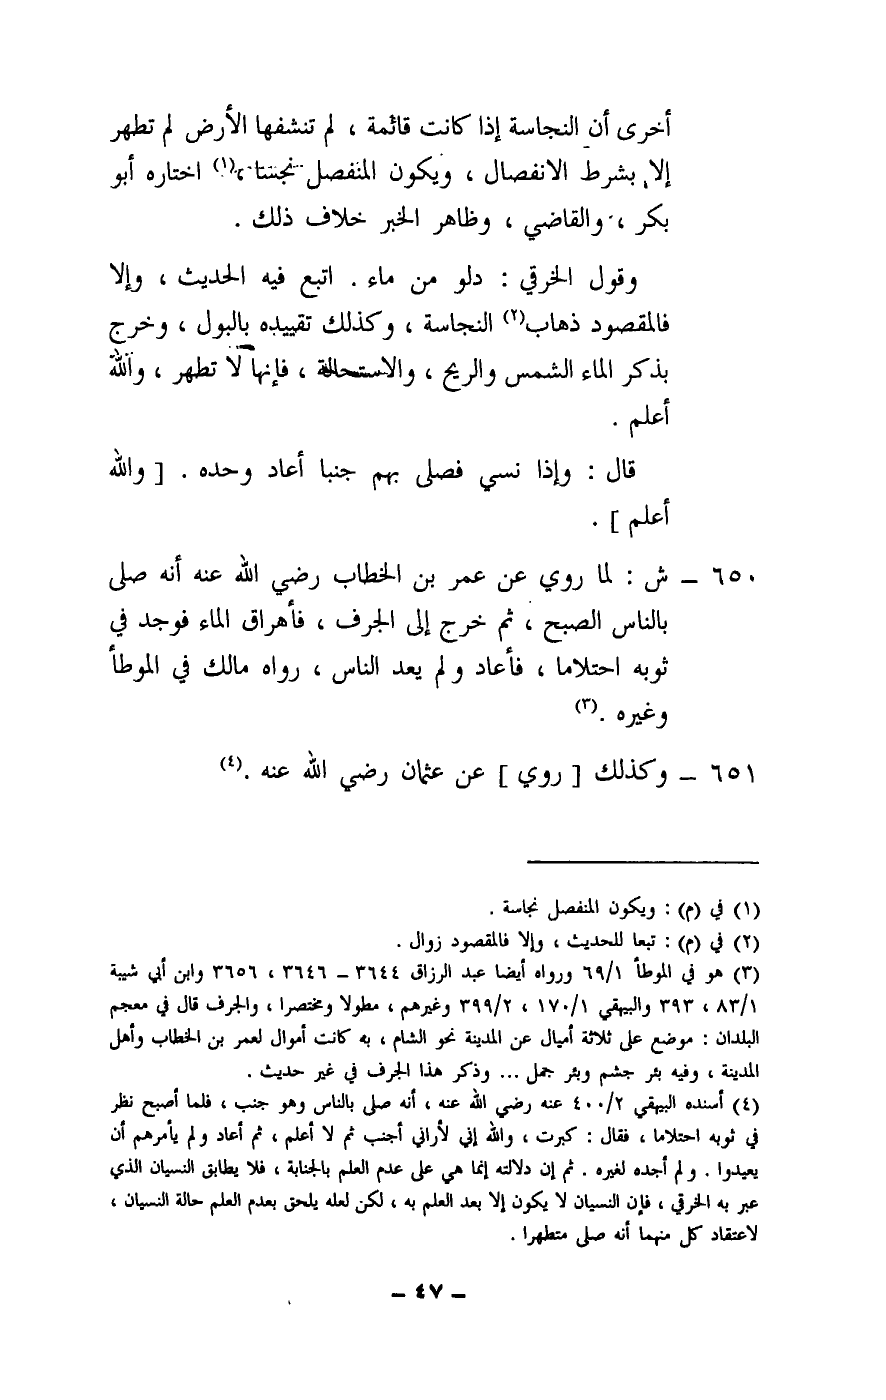 أخرى أن النجاسة إذا كانت قائمة ، لم تنشفها الأرض لم تطهر
إلا بشرط الانفصال ، ويكون المنفصل نجسا ،(١) اختاره أبو
بكر ، والقاضي ، وظاهر الخبر خلاف ذلك .
وقول الخرقي : دلو من ماء . اتبع فيه الحديث ، وإلا
فالمقصود ذهاب(٢) النجاسة ، وكذلك تقييده بالبول ، وخرج
بذكر الماء الشمس والريح ، والاستحالة ، فإنها لا تطهر ، والله
أعلم .
قال : وإذا نسي فصلى بهم جنبا أعاد وحده . [ والله
أعلم ] .
٦٥٠ – ش : لما روي عن عمر بن الخطاب رضي الله عنه أنه صلى
بالناس الصبح ، ثم خرج إلى الجرف ، فأهراق الماء فوجد في
ثوبه احتلاما ، فأعاد ولم يعد الناس ، رواه مالك في الموطأ
وغيره .(٣)
٦٥١ – وكذلك [ روي ] عن عثمان رضي الله عنه .(٤)
(١) في (م) : ويكون المنفصل نجاسة .
(٢) في (م) : تبعا للحديث ، وإلا فالمقصود زوال .
(٣) هو في الموطأ ٦٩/١ ورواه أيضا عبد الرزاق ٣٦٤٤ – ٣٦٤٦ ، ٣٦٥٦ وابن أبي شيبة
٨٣/١ ، ٣٩٣ والبيهقي ١٧٠/١ ، ٣٩٩/٢ وغيرهم ، مطولا ومختصرا ، والجرف قال في معجم
البلدان : موضع على ثلاثة أميال عن المدينة نحو الشام ، به كانت أموال لعمر بن الخطاب وأهل
المدينة ، وفيه بئر جشم وبئر جمل ... وذكر هذا الجرف في غير حديث .
(٤) أسنده البيهقي ٤٠٠/٢ عنه رضي الله عنه ، أنه صلى بالناس وهو جنب ، فلما أصبح نظر
في ثوبه احتلاما ، فقال : كبرت ، والله إني لأراني أجنب ثم لا أعلم ، ثم أعاد ولم يأمرهم أن
يعيدوا . ولم أجده لغيره . ثم إن دلالته إنما هي على عدم العلم بالجنابة ، فلا يطابق النسيان الذي
عبر به الخرقي ، فإن النسيان لا يكون إلا بعد العلم به ، لكن لعله يلحق بعدم العلم حالة النسيان ،
لاعتقاد كل منهما أنه صلى متطهرا .
– ٤٧ –